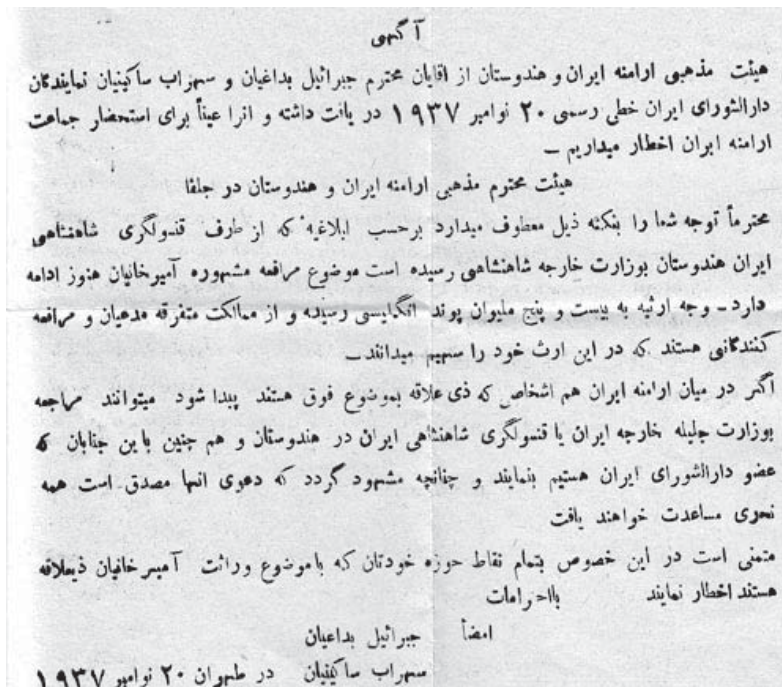 آگهی
هیئت مذهبی ارامنه ایران و هندوستان از اقایان محترم جبرائیل بداغیان و سهراب ساکینیان نمایندگان
دارالشورای ایران خطی رسمی ۲۰ نوامبر ۱۹۳۷ در یافت داشته و انرا عیناً برای استحضار جماعت
ارامنه ایران اخطار میداریم —
هیئت محترم مذهبی ارامنه ایران و هندوستان در جلفا
محترماً توجه شما را بنکته ذیل معطوف میدارد برحسب ابلاغیه که از طرف قنسولگری شاهنشاهی
ایران هندوستان بوزارت خارجه شاهنشاهی رسیده است موضوع مرافعه مشهوره آمیرخانیان هنوز ادامه
دارد ـ وجه ارثیه به بیست و پنج ملیوان پوند انگلیسی رسیده و از ممالکت متفرقه مدعیان و مرافعه
کنندگانی هستند که در این ارث خود را سهیم میدانند —
اگر در میان ارامنه ایران هم اشخاص که ذی علاقه بموضوع فوق هستند پیدا شود میتوانند مراجعه
بوزارت جلیله خارجه ایران یا قنسولگری شاهنشاهی ایران در هندوستان و هم چنین باین جنابان که
عضو دارالشورای ایران هستیم بنمایند و چنانچه مشهود گردد که دعوی انها مصدق است همه
نحری مساعدت خواهند یافت
متمنی است در این خصوص بتمام نقاط حوزه خودتان که باموضوع وراثت آمیرخانیان ذیعلاقه
هستند اخطار نمایند بااحترامات
امضأ جبرائیل بداغیان
سهراب ساکینیان در طهران ۲۰ نوامبر ۱۹۳۷